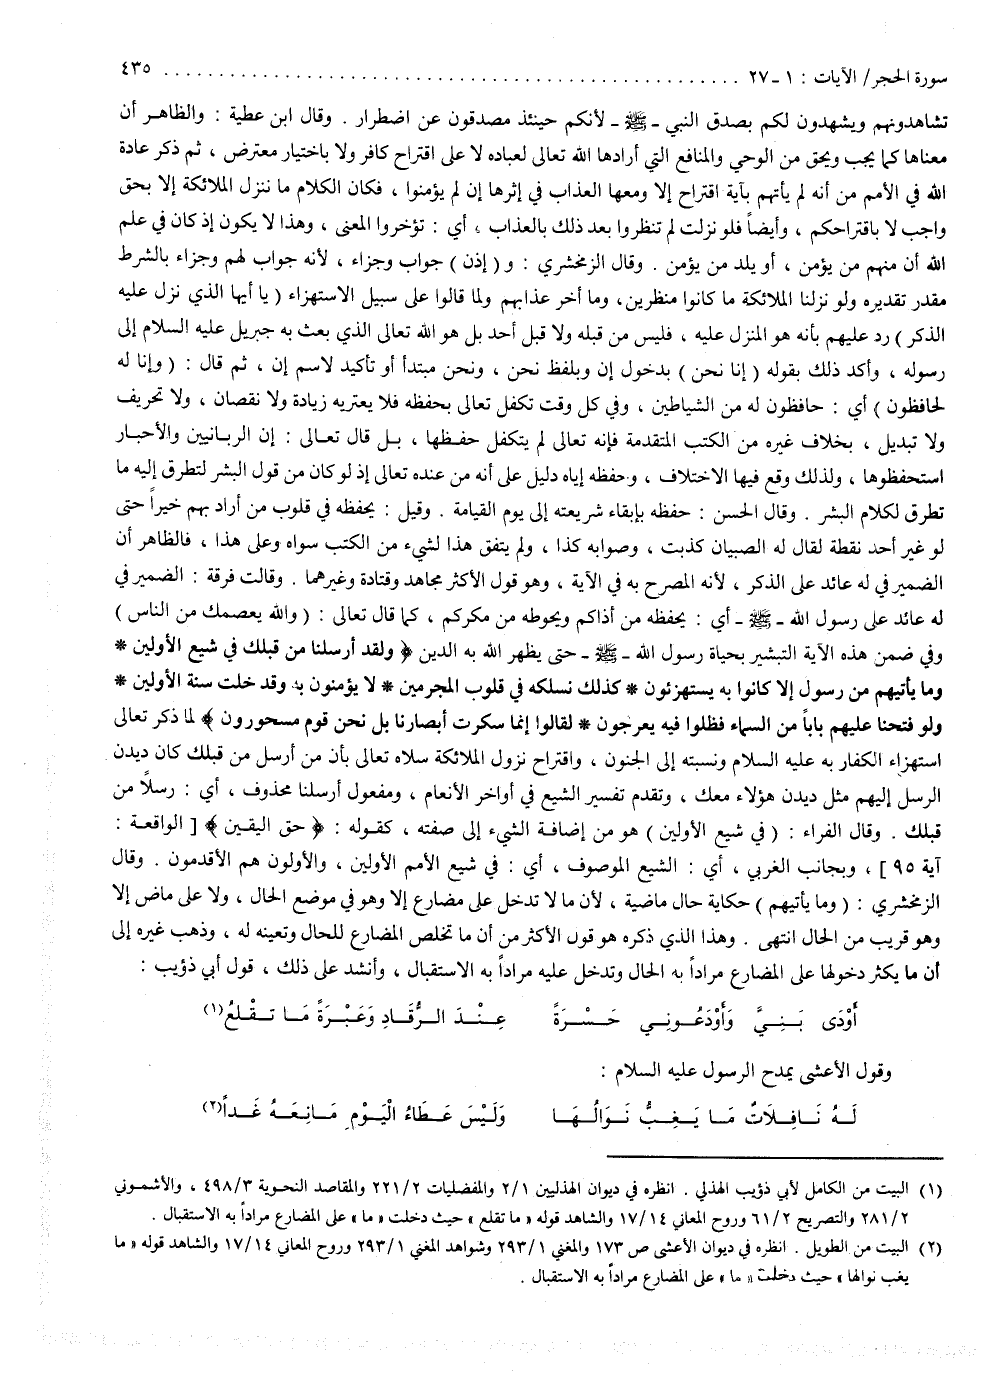 سورة الحجر/ الآيات : ١ ـ ٢٧ ............................................................ ٤٣٥
تشاهدونهم ويشهدون لكم بصدق النبي ـ ﷺ ـ لأنكم حينئذ مصدقون عن اضطرار . وقال ابن عطية : والظاهر أن
معناها كما يجب ويحق من الوحي والمنافع التي أرادها الله تعالى لعباده لا على اقتراح كافر ولا باختيار معترض ، ثم ذكر عادة
الله في الأمم من أنه لم يأتهم بآية اقتراح إلا ومعها العذاب في إثرها إن لم يؤمنوا ، فكان الكلام ما ننزل الملائكة إلا بحق
واجب لا باقتراحكم ، وأيضاً فلو نزلت لم تنظروا بعد ذلك بالعذاب ، أي : تؤخروا المعنى ، وهذا لا يكون إذ كان في علم
الله أن منهم من يؤمن ، أو يلد من يؤمن . وقال الزمخشري : و ( إذن ) جواب وجزاء ، لأنه جواب لهم وجزاء بالشرط
مقدر تقديره ولو نزلنا الملائكة ما كانوا منظرين، وما أخر عذابهم ولما قالوا على سبيل الاستهزاء ( يا أيها الذي نزل عليه
الذكر ) رد عليهم بأنه هو المنزل عليه ، فليس من قبله ولا قبل أحد بل هو الله تعالى الذي بعث به جبريل عليه السلام إلى
رسوله ، وأكد ذلك بقوله ( إنا نحن ) بدخول إن وبلفظ نحن ، ونحن مبتدأ أو تأكيد لاسم إن ، ثم قال : ( وإنا له
لحافظون ) أي : حافظون له من الشياطين ، وفي كل وقت تكفل تعالى بحفظه فلا يعتريه زيادة ولا نقصان ، ولا تحريف
ولا تبديل ، بخلاف غيره من الكتب المتقدمة فإنه تعالى لم يتكفل حفظها ، بل قال تعالى : إن الربانيين والأحبار
استحفظوها ، ولذلك وقع فيها الاختلاف ، وحفظه إياه دليل على أنه من عنده تعالى إذ لو كان من قول البشر لتطرق إليه ما
تطرق لكلام البشر . وقال الحسن : حفظه بإبقاء شريعته إلى يوم القيامة . وقيل : يحفظه في قلوب من أراد بهم خيراً حتى
لو غير أحد نقطة لقال له الصبيان كذبت ، وصوابه كذا ، ولم يتفق هذا لشيء من الكتب سواه وعلى هذا ، فالظاهر أن
الضمير في له عائد على الذكر ، لأنه المصرح به في الآية ، وهو قول الأكثر مجاهد وقتادة وغيرهما . وقالت فرقة : الضمير في
له عائد على رسول الله ـ ﷺ ـ أي : يحفظه من أذاكم ويحوطه من مكركم ، كما قال تعالى : ( والله يعصمك من الناس )
وفي ضمن هذه الآية التبشير بحياة رسول الله ـ ﷺ ـ حتى يظهر الله به الدين ﴿ ولقد أرسلنا من قبلك في شيع الأولين *
وما يأتيهم من رسول إلا كانوا به يستهزئون * كذلك نسلكه في قلوب المجرمين * لا يؤمنون به وقد خلت سنة الأولين *
ولو فتحنا عليهم باباً من السماء فظلوا فيه يعرجون * لقالوا إنما سكرت أبصارنا بل نحن قوم مسحورون ﴾ لما ذكر تعالى
استهزاء الكفار به عليه السلام ونسبته إلى الجنون ، واقتراح نزول الملائكة سلاه تعالى بأن من أرسل من قبلك كان ديدن
الرسل إليهم مثل ديدن هؤلاء معك ، وتقدم تفسير الشيع في أواخر الأنعام ، ومفعول أرسلنا محذوف ، أي : رسلاً من
قبلك . وقال الفراء : ( في شيع الأولين ) هو من إضافة الشيء إلى صفته ، كقوله : ﴿ حق اليقين ﴾ [ الواقعة :
آية ٩٥ ] ، وبجانب الغربي ، أي : الشيع الموصوف ، أي : في شيع الأمم الأولين ، والأولون هم الأقدمون . وقال
الزمخشري : ( وما يأتيهم ) حكاية حال ماضية ، لأن ما لا تدخل على مضارع إلا وهو في موضع الحال ، ولا على ماض إلا
وهو قريب من الحال انتهى . وهذا الذي ذكره هو قول الأكثر من أن ما تخلص المضارع للحال وتعينه له ، وذهب غيره إلى
أن ما يكثر دخولها على المضارع مراداً به الحال وتدخل عليه مراداً به الاستقبال ، وأنشد على ذلك ، قول أبي ذؤيب :
أَوْدَى بَنِيَّ وَأَوْدَعُونِي حَسْرَةً عِنْدَ الرُّقَادِ وَعَبْرَةً مَا تقْلعُ(١)
وقول الأعشى يمدح الرسول عليه السلام :
لَهُ نَافِلَاتٌ مَا يَغِبُّ نَوَالُهَا وَلَيْسَ عَطَاءُ الْيَوْمِ مَانِعَهُ غَداً(٢)
(١) البيت من الكامل لأبي ذؤيب الهذلي . انظره في ديوان الهذليين ٢/١ والمفضليات ٢٢١/٢ والمقاصد النحوية ٤٩٨/٣ ، والأشموني
٢٨١/٢ والتصريح ٦١/٢ وروح المعاني ١٧/١٤ والشاهد قوله « ما تقلع » حيث دخلت « ما » على المضارع مراداً به الاستقبال .
(٢) البيت من الطويل . انظره في ديوان الأعشى ص ١٧٣ والمغني ٢٩٣/١ وشواهد المغني ٢٩٣/١ وروح المعاني ١٧/١٤ والشاهد قوله « ما
يغب نوالها » حيث دخلت « ما » على المضارع مراداً به الاستقبال .